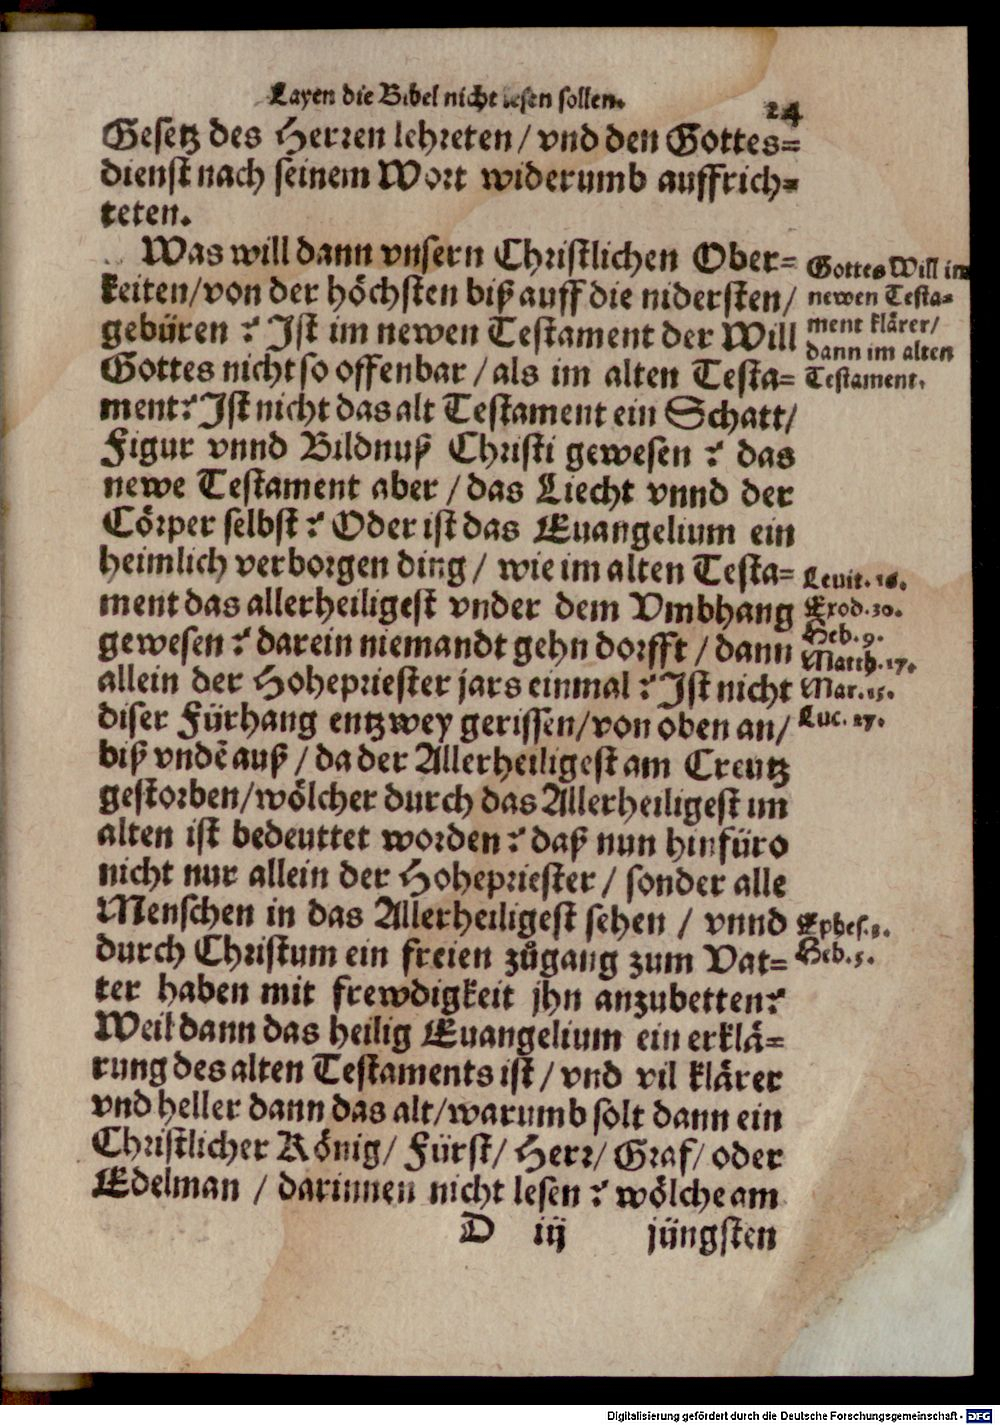 Layen die Bibel nicht lesen sollen.
24
Gesetz des Herren lehreten / vnd den Gottes=
dienst nach seinem Wort widerumb auffrich=
teten.
Was will dann vnsern Christlichen Ober=
keiten / von der höchsten biß auff die nidersten /
gebüren ? Ist im newen Testament der Will
Gottes nicht so offenbar / als im alten Testa=
ment? Ist nicht das alt Testament ein Schatt /
Figur vnnd Bildnuß Christi gewesen ? das
newe Testament aber / das Liecht vnnd der
Cörper selbst ? Oder ist das Euangelium ein
heimlich verborgen ding / wie im alten Testa=
ment das allerheiligest vnder dem Vmbhang
gewesen ? darein niemandt gehn dorfft / dann
allein der Hohepriester jars einmal ? Ist nicht
diser Fürhang entzwey gerissen / von oben an /
biß vndẽ auß / da der Allerheiligest am Creutz
gestorben / wölcher durch das Allerheiligest im
alten ist bedeuttet worden ? daß nun hinfüro
nicht nur allein der Hohepriester / sonder alle
Menschen in das Allerheiligest sehen / vnnd
durch Christum ein freien zůgang zum Vat=
ter haben mit frewdigkeit jhn anzubetten?
Weil dann das heilig Euangelium ein erklä=
rung des alten Testaments ist / vnd vil klärer
vnd heller dann das alt / warumb solt dann ein
Christlicher König / Fürst / Herr / Graf / oder
Edelman / darinnen nicht lesen ? wölche am
D iij jüngsten
Gottes Will im
newen Testa=
ment klärer /
dann im alten
Testament.
Leuit. 16.
Exod. 30.
Heb. 9.
Matth. 27.
Mar. 15.
Luc. 27.
Ephes. 3.
Heb. 5.
Digitalisierung gefördert durch die Deutsche Forschungsgemeinschaft - DFG